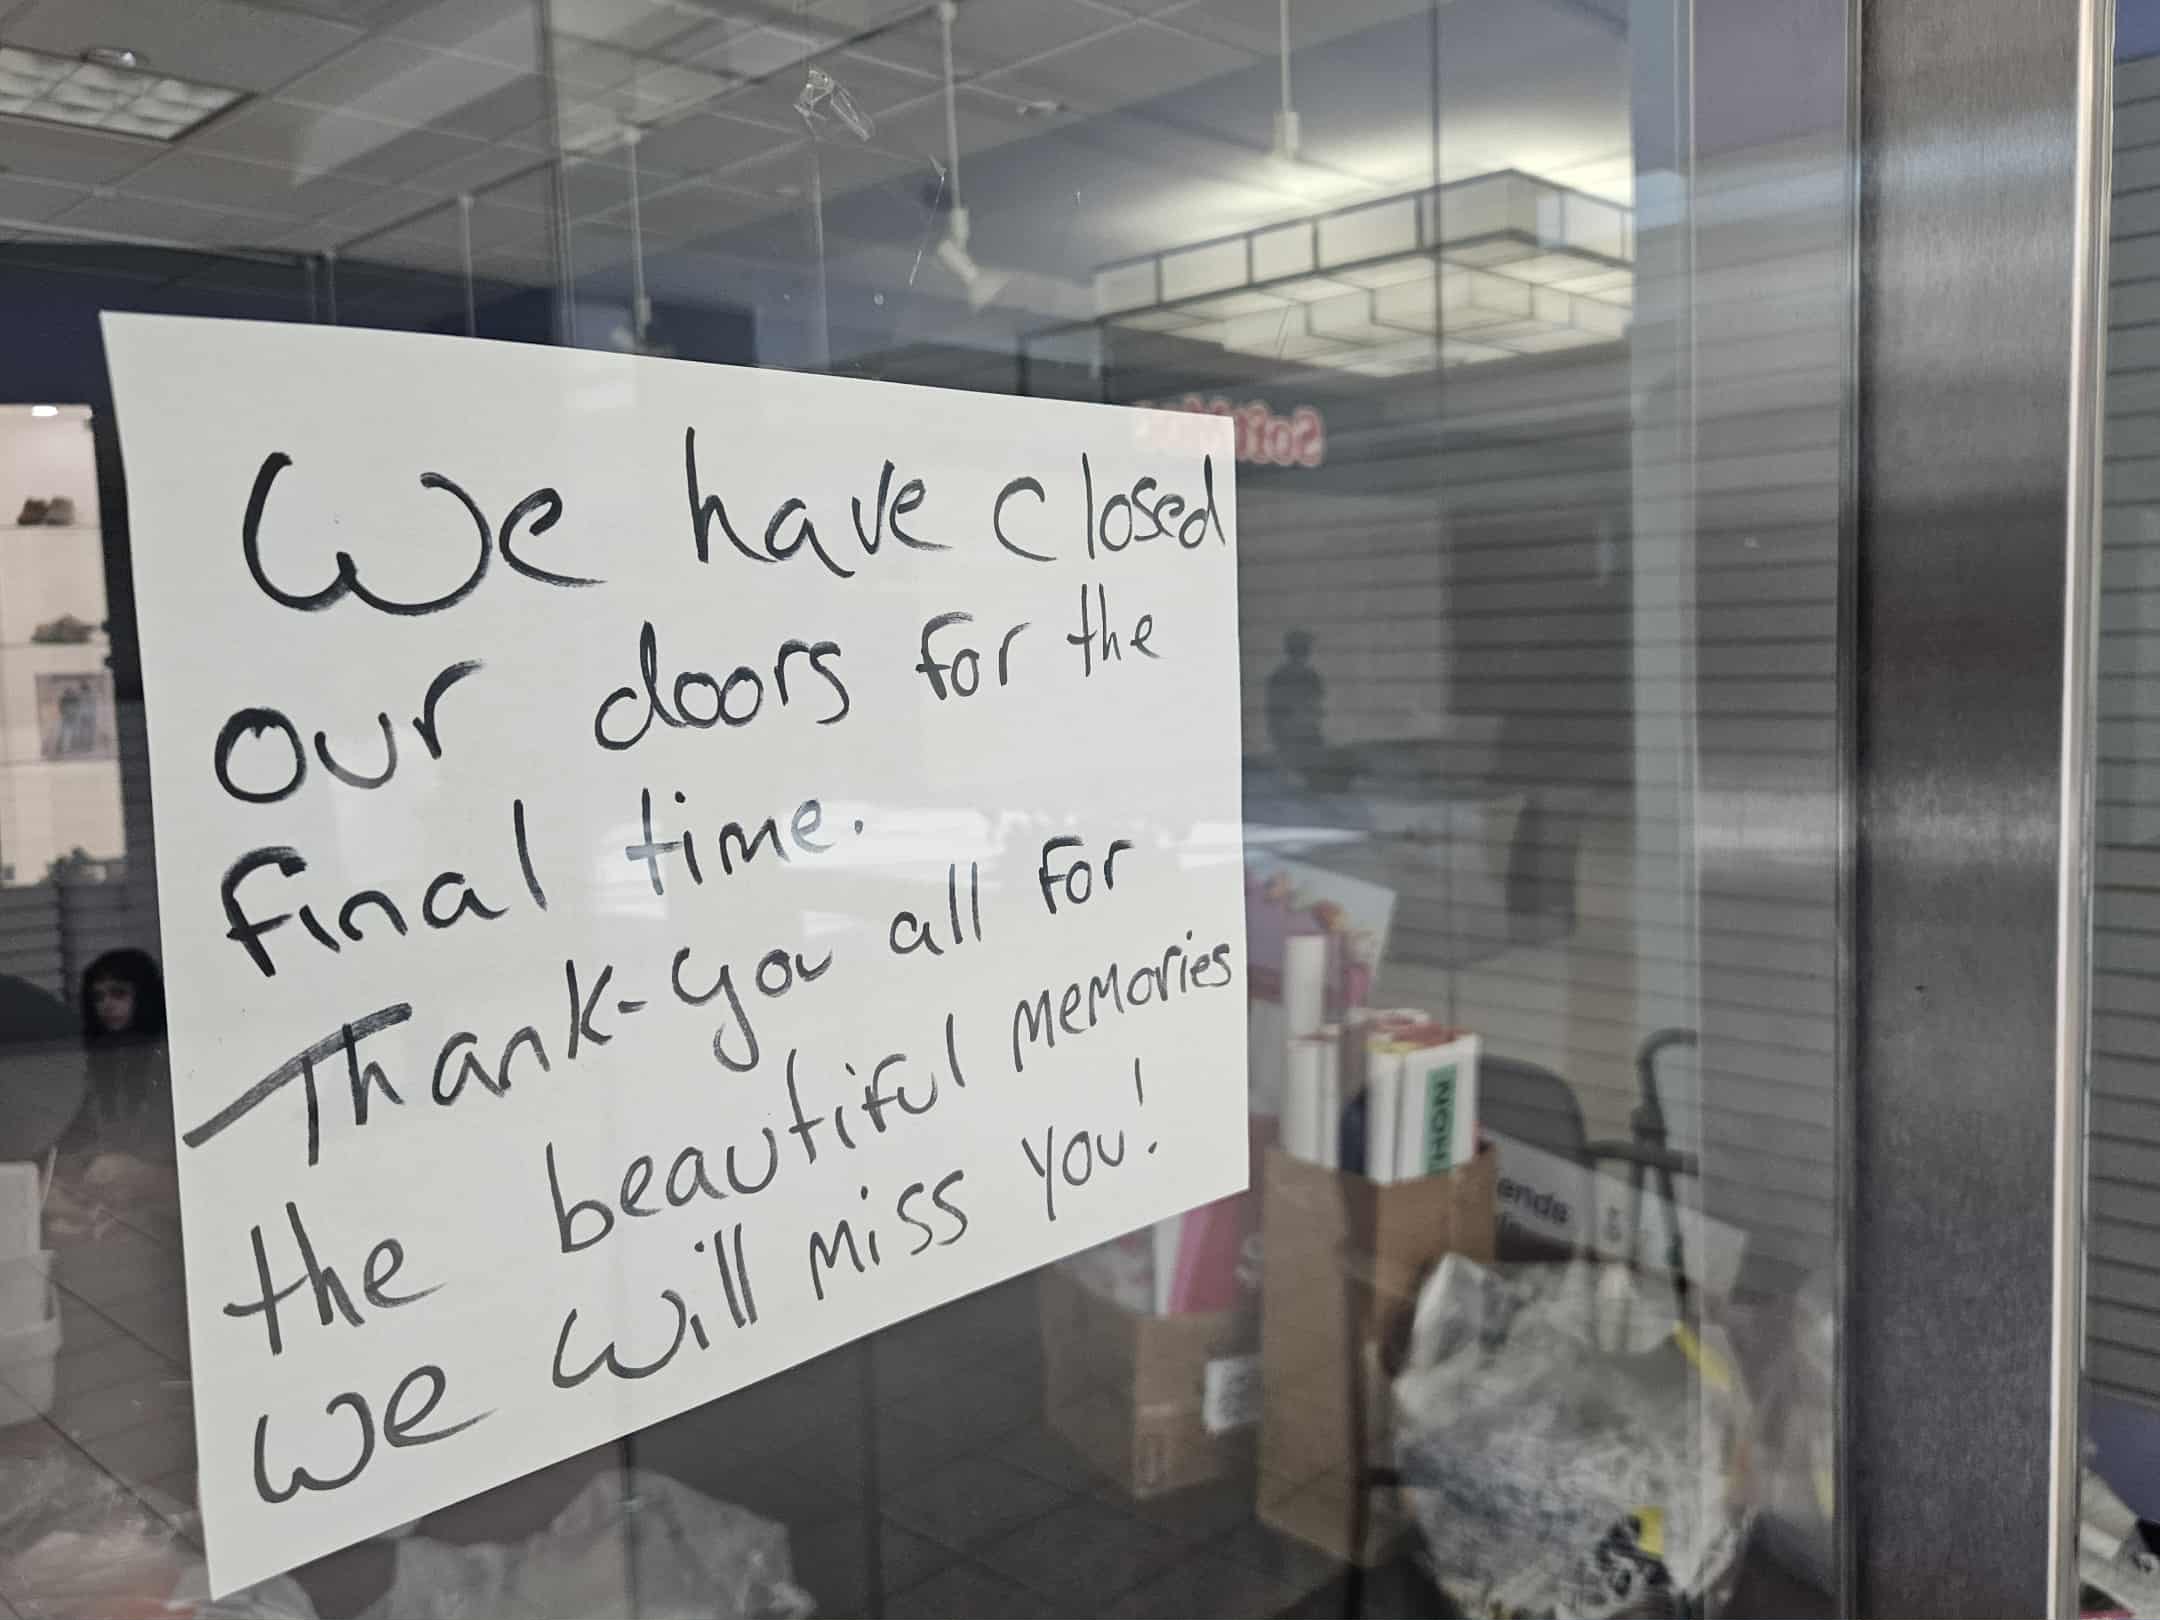 We have closed
our doors for the
final time.
Thank-you all for
the beautiful memories
we will miss you!
ends